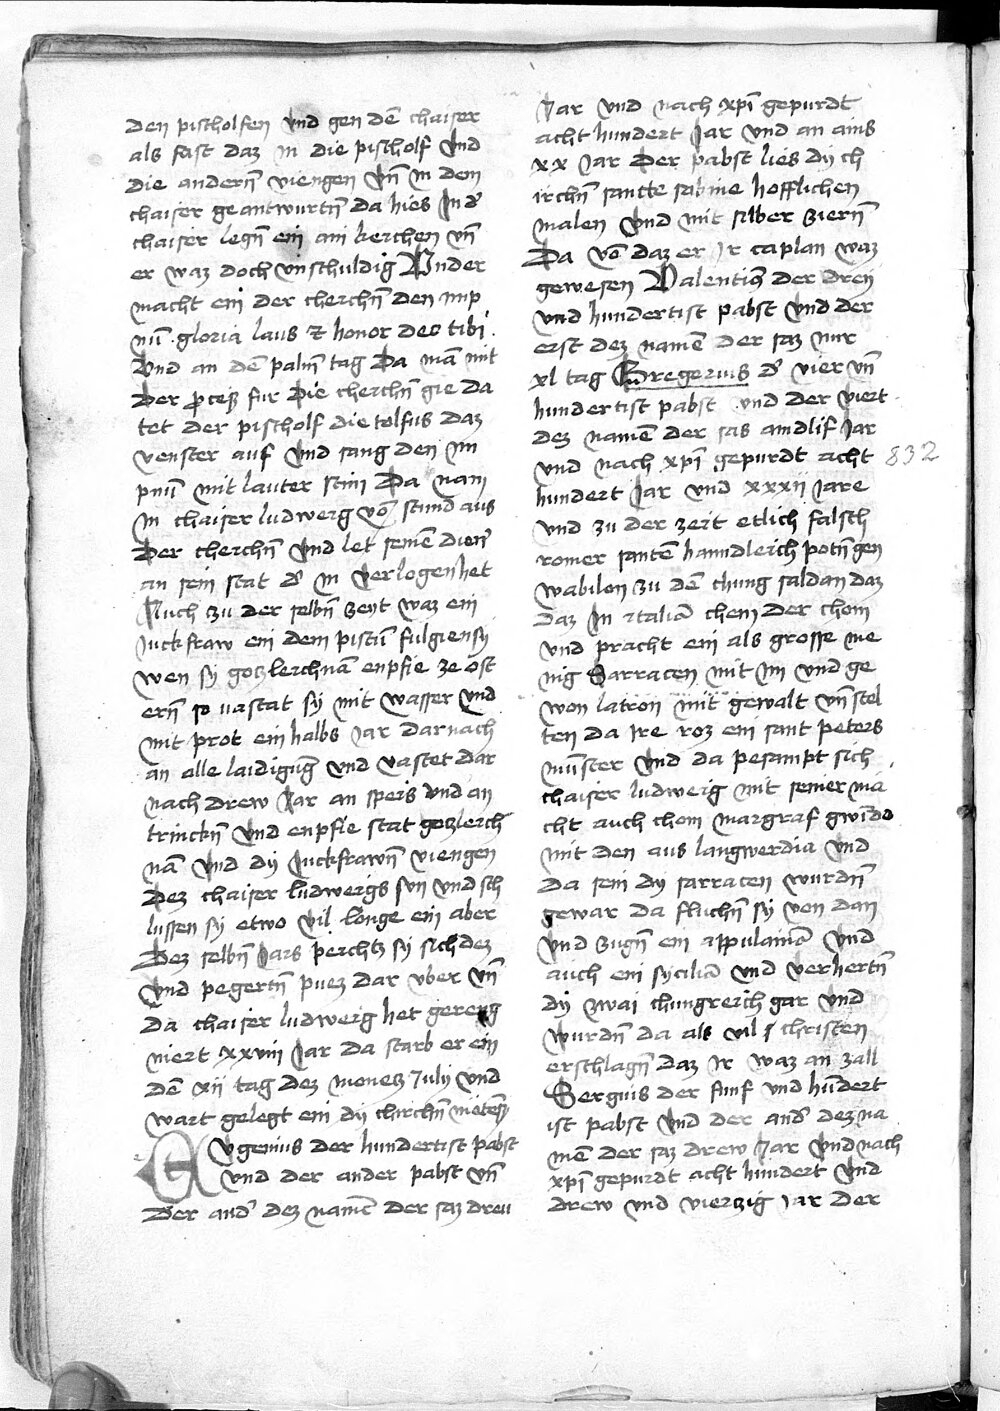 den pischolfen und gen dē chaiser
als fast daz in die pischolf und
die andern̄ viengen un̄ in dem
chaiser geantwurtn̄ da hies in d'
chaiser legn̄ ein ain kerchen un̄
er waz doch unschuldig Under
macht ein der cherchn̄ den imp
nū. gloria laus et honor deo tibi.
Und an dē palm̄ tag Da mā mit
Der proceß fur die cherchn̄ gie da
tet der pischolf dietolfus daz
venster auf und sang den im
pnū mit lauter stim Da nam
In chaiser ludweig vō stund aus
Der cherchn̄ und let seinē dien'
an sein stat d' in verlogen het
Auch zu der selbn̄ zeyt waz ein
Juckfraw ein dem pistū fulgiensy
wen sy gotzleichnā enpfie ze ost
ern̄ so vastat sy mit wasser und
mit prot ein halbs iar darnach
an alle laidigūg und vastet dar
nach drew Jar an speis und an
trinckn̄ und enpfie stat gotzleich
nā und dy Juckfrawn̄ viengen
Dez chaiser ludweigs sun und sch
lussen sy etwo vil longe ein aber
Dez selbn̄ Jars perchtz sy sich dez
und pegertn̄ puez dar uber un̄
Da chaiser ludweig het gereng
niert xxviii Jar da starb er ein
dē xii tag dez monetz July und
wart gelegt ein dy chirchn̄ metēsy
Eugenius der hundertist pabst
und der ander pabst un̄
Der and' dez namē der saz dreu
Jar und nach xpī gepurdt
acht hundert Jar und an ains
xx Jar Der pabst lies dy ch
irchn̄ sancte sabine hofflichen
malen und mit silber ziern̄
Da vō daz er ir caplan waz
gewesen Valentin' der drey
und hundertist pabst und der
erst dez namē der saz nur
xl tag Gregerius d' vier un̄
hundertist pabst und der viert
dez namē der sas aindlif Jar
und nach xpī gepurdt acht 832
hundert Jar und xxxii Jare
und zu der zeit etlich falsch
romer santē hanndleich potn̄ gen
wabilon zu dē chung saldan daz
daz in ytaliā chem der chom
und pracht ein als grosse me
nig Sarracen mit im und ge
won latron mit gewalt un̄ stel
ten da ire roz ein sant peters
mūster und da pesampt sich
chaiser ludweig mit seiner mā
cht auch chom margraf gwīdo
mit den aus langwerdia und
da sein dy sarracen wurdn̄
gewar da fluchn̄ sy von dan
und zugn̄ ein appulainā und
auch ein syciliā und verhertn̄
dy zwai chungreich gar und
wurdn̄ da als vil christen
erschlagn̄ daz ir waz an zall
Sergius der funf und hūdert
ist pabst und der and' dez na
mē der saz drew Jar und nach
xpī gepurdt acht hundert und
drew und vierzig iar der